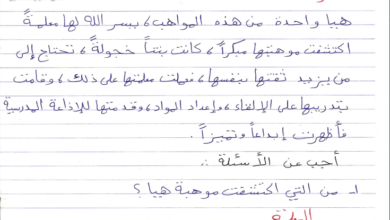 هيا واحدة من هذه المواهب، يسر الله لها معلمةً
اكتشفت موهبتها مبكراً، كانت بنتاً خجولةً، تحتاج إلى
من يزيد ثقتها بنفسها، فعملت معلمتها على ذلك، وقامت
بتدريبها على الإلقاء، وإعداد المواد، وقدمتها للإذاعة المدرسية
فأظهرت إبداعاً وتميزاً.
أجب عن الأسئلة :.
١- من التي اكتشفت موهبة هيا؟
المعلمة